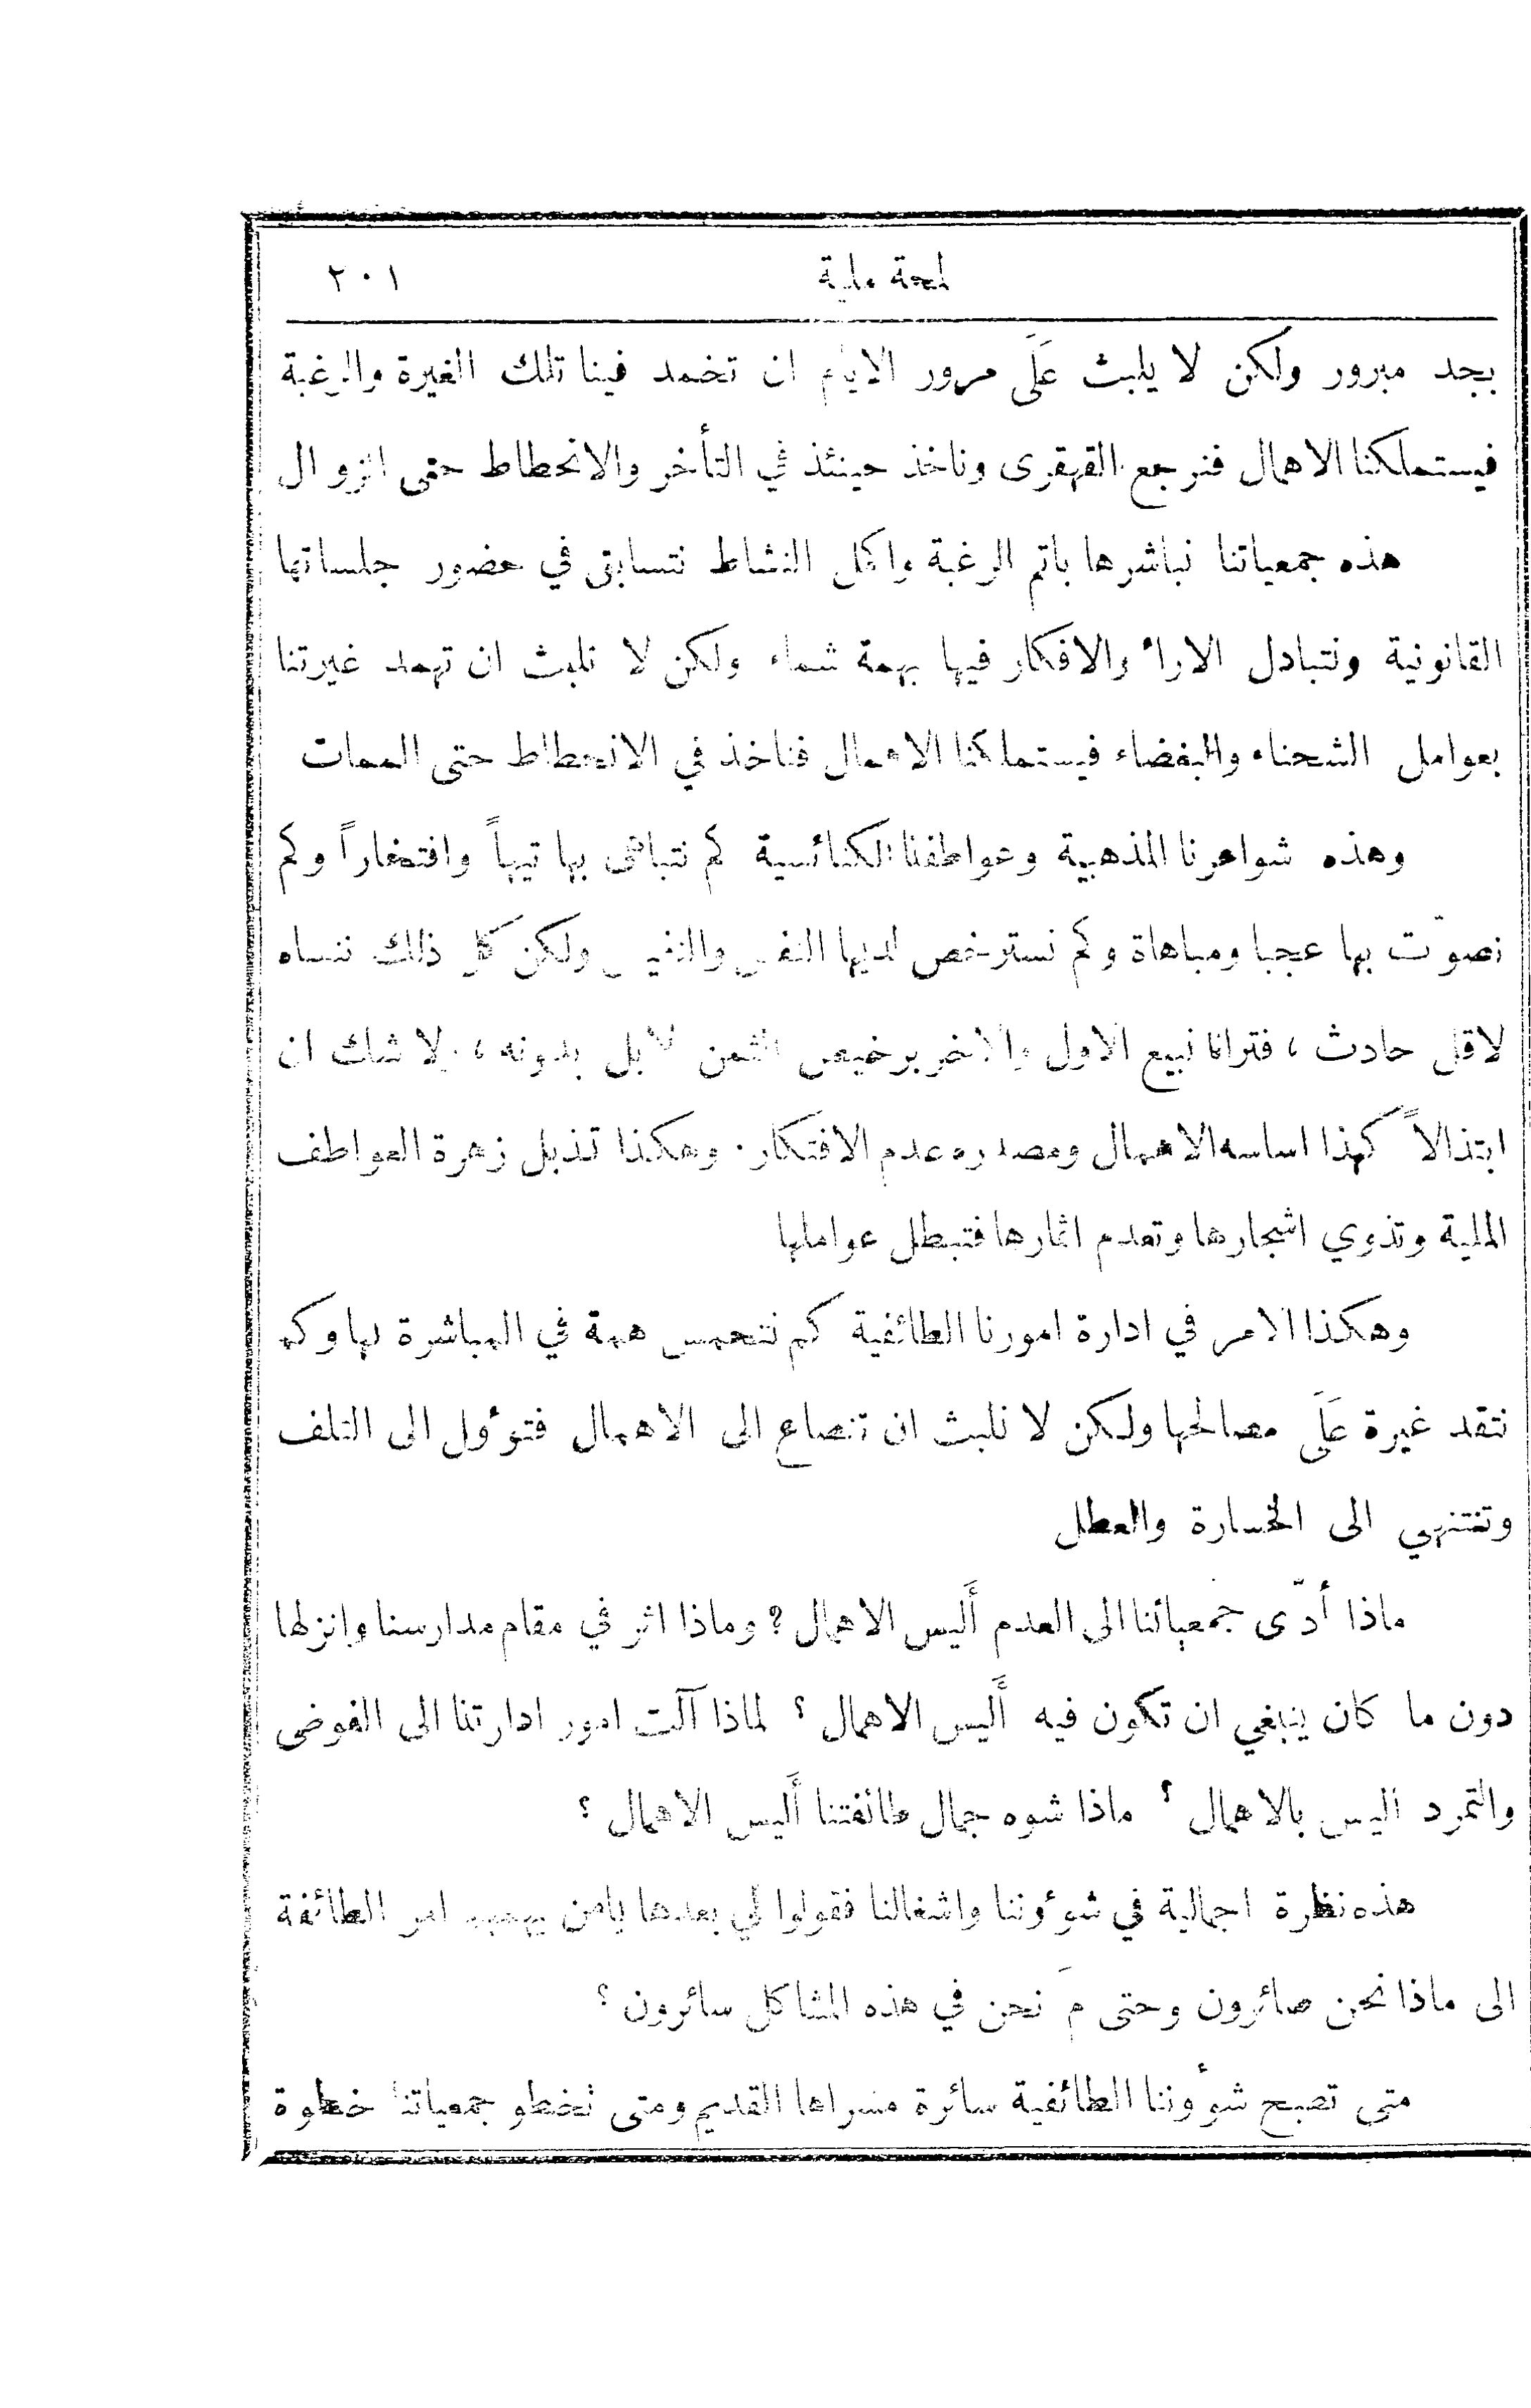 لمحة ملية ٢٠١
بجد مبرور ولكن لا يلبث عَلَى مرور الايام ان تخمد فينا تلك الغيرة والرغبة
فيستملكنا الاهمال فنرجع القهقرى وناخذ حينئذ في التأخر والانحطاط حتى الزوال
هذه جمعياتنا نباشرها باتم الرغبة واكمل النشاط نتسابق في حضور جلساتها
القانونية ونتبادل الاراء والافكار فيها بهمة شماء ولكن لا نلبث ان تهمد غيرتنا
بعوامل الشحناء والبغضاء فيستملكنا الاهمال فناخذ في الانحطاط حتى الممات
وهذه شواعرنا المذهبية وعواطفنا الكنائسية كم نتباهى بها تيهاً وافتخاراً وكم
نصوّت بها عجبا ومباهاة وكم نسترخص لديها النفس والنفيس ولكن كل ذلك ننساه
لاقل حادث ، فترانا نبيع الاول والاخر برخيص الثمن لا بل بدونه ، ولا شك ان
ابتذالاً كهذا اساسه الاهمال ومصدره عدم الافتكار . وهكذا تذبل زهرة العواطف
الملية وتذوي اشجارها وتعدم اثمارها فتبطل عواملها
وهكذا الامر في ادارة امورنا الطائفية كم نتحمس همة في المباشرة لها وكم
نتقد غيرة عَلَى مصالحها ولكن لا نلبث ان تنصاع الى الاهمال فتوُول الى التلف
وتنتهي الى الخسارة والعطل
ماذا أدّى جمعياتنا الى العدم أَليس الاهمال ؟ وماذا اثر في مقام مدارسنا وانزلها
دون ما كان ينبغي ان تكون فيه أَليس الاهمال ؟ لماذا آلت امور ادارتنا الى الفوضى
والتمرد اليس بالاهمال ؟ ماذا شوه جمال طائفتنا أَليس الاهمال ؟
هذه نظرة اجمالية في شوُوننا واشغالنا فقولوا لي بعدها يامن يهمهم امر الطائفة
الى ماذا نحن صائرون وحتى مَ نحن في هذه المشاكل سائرون ؟
متى تصبح شوُوننا الطائفية سائرة مسراها القديم ومتى تخطو جمعياتنا خطوة